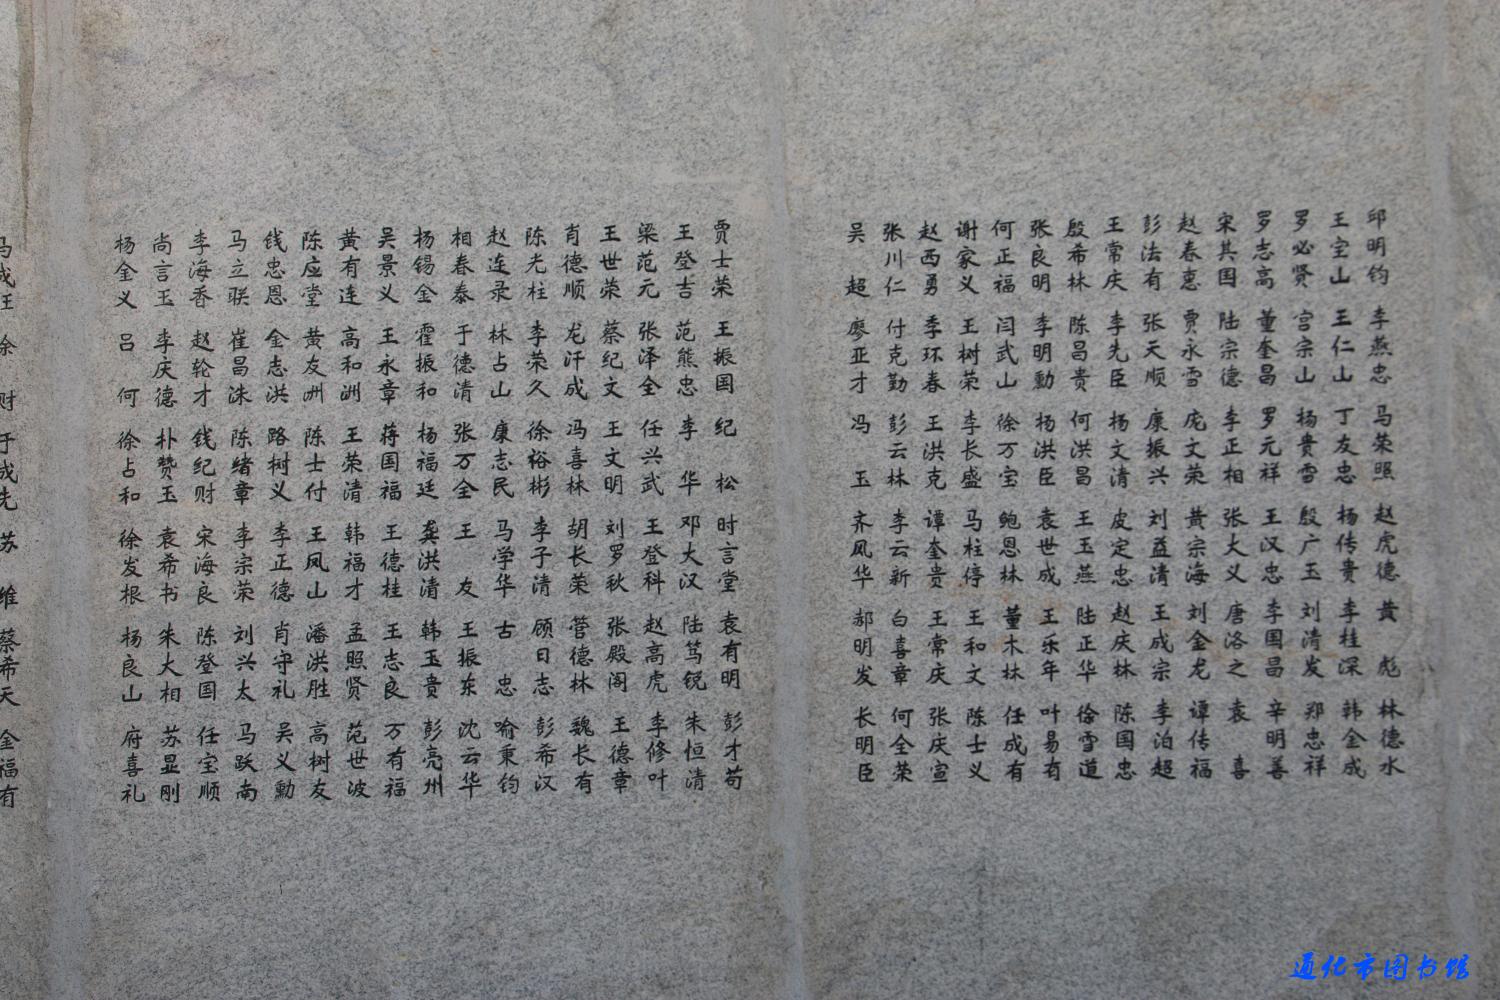 邱明钧 李燕忠 马荣照 赵虎德 黄彪 林德水
王宝山 王仁山 丁友忠 杨传贵 李桂深 韩金成
罗必贤 宫宗山 杨贵雪 殷广玉 刘清发 郑忠祥
罗志高 董奎昌 罗元祥 王汉忠 李国昌 辛明善
宋其国 陆宗德 李正相 张大义 唐洛之 袁喜
赵春惠 贾永雪 庞文荣 黄宗海 刘金龙 谭传福
彭法有 张天顺 康振兴 刘益清 王成宗 李泊超
王常庆 李先臣 杨文清 皮定忠 赵庆林 陈国忠
殷希林 陈昌贵 何洪昌 王玉燕 陆正华 徐雪道
张良明 李明勳 杨洪臣 袁世成 王乐年 叶易有
何正福 闫武山 徐万宝 鲍恩林 董木林 任成有
谢家义 王树荣 李长盛 马柱停 王和文 陈士义
赵西勇 季环春 王洪克 谭奎贵 王常庆 张庆宣
张川仁 付克勤 彭云林 李云新 白喜章 何全荣
吴超 廖亚才 冯玉 齐风华 郝明发 长明臣
贾士荣 王振国 纪松 时言堂 袁有明 彭才苟
王登吉 范熊忠 李华 邓大汉 陆笃锐 朱恒清
梁范元 张泽全 任兴武 王登科 赵高虎 李修叶
王世荣 蔡纪文 王文明 刘罗秋 张殿阁 王德章
肖德顺 龙汗成 冯喜林 胡长荣 管德林 魏长有
陈光柱 李荣久 徐裕彬 李子清 顾日志 彭希汉
赵连录 林占山 康志民 马学华 古忠 喻秉钧
相春泰 于德清 张万全 王友 王振东 沈云华
杨锡金 霍振和 杨福廷 龚洪清 韩玉贵 彭亮州
吴景义 王永章 蒋国福 王德桂 王志良 万有福
黄有连 高和洲 王荣清 韩福才 孟照贤 范世波
陈应堂 黄友洲 陈士付 王凤山 潘洪胜 高树友
钱忠恩 金志洪 路树义 李正德 肖守礼 吴义勳
马立联 崔昌洙 陈绪章 李宗荣 刘兴太 马跃南
李海香 赵轮才 钱纪财 宋海良 陈登国 任宝顺
尚言玉 李庆德 朴赞玉 袁希书 朱大相 苏显刚
杨金义 吕何 徐占和 徐发根 杨良山 府喜礼
马成旺 徐财 于成先 苏维 蔡希天 金福有
通化市图书馆